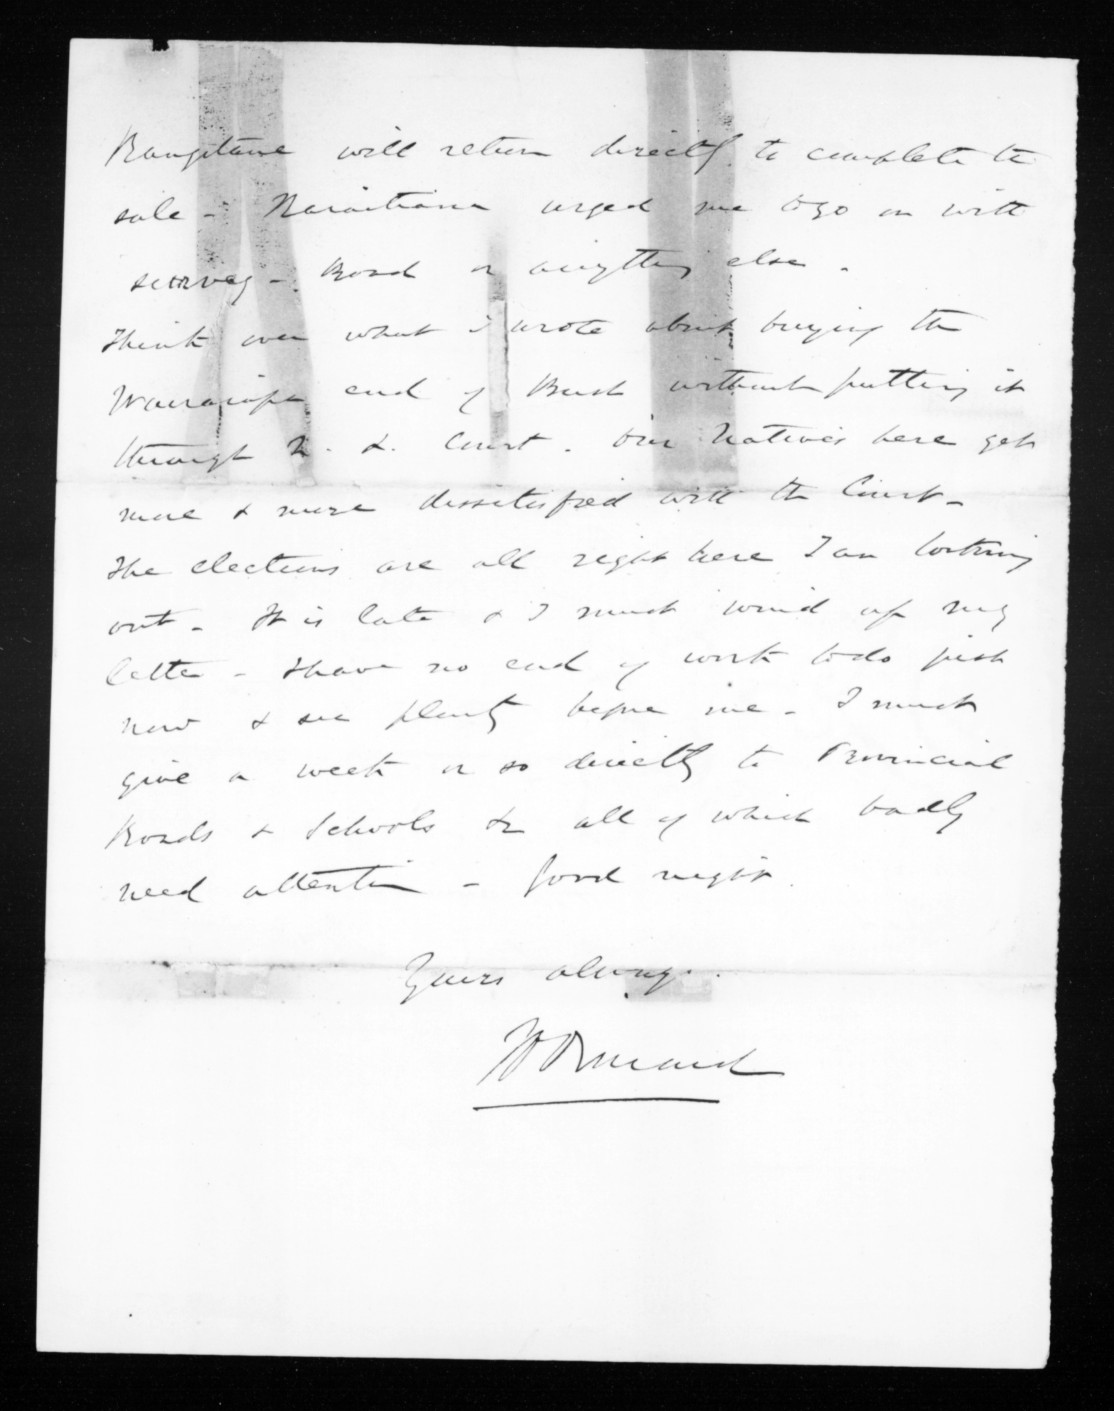 Rangitane will return directly to complete the
sale - Karaitiana urged me to go on with
survey - Road or anything else.
Think over what I wrote about buying the
Wairarapa end of Bush without putting it
through N. L. Court. Our Natives here get
more & more dissatisfied with the Court -
The elections are all right here I am looking
out. It is late & I must wind up my
letter - I have no end of work to do just
now & see plenty before me - I must
give a week or so directly to Provincial
Roads & Schools &c all of which badly
need attention - Good night.
Yours always.
JD Ormond